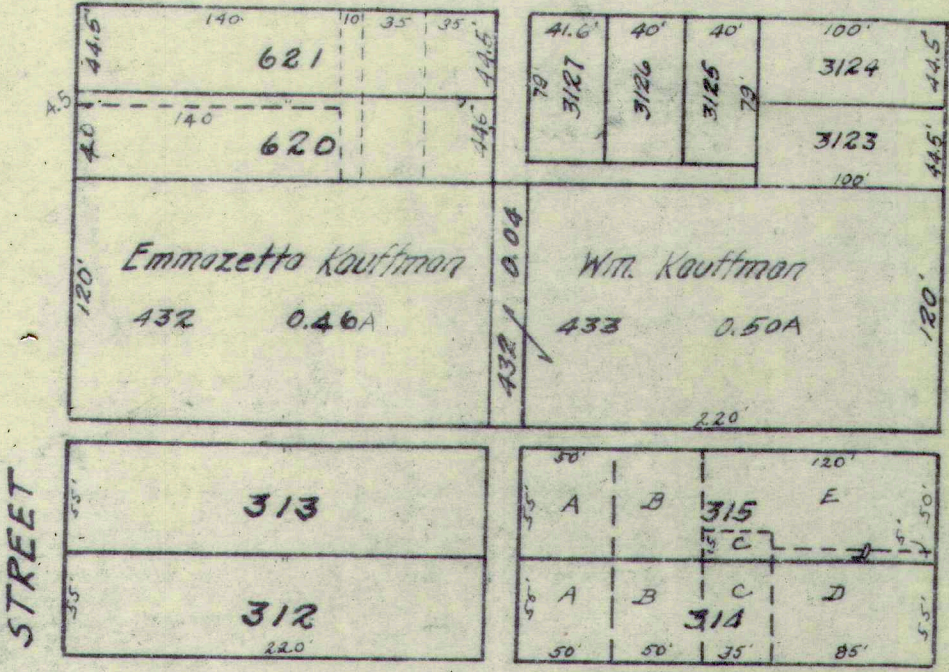 140' 10' 35' 35'
44.5' 621 44.5'
4.5
140
40 620 44.5'
41.6' 40' 40' 100'
79' 3127 3126 3125 79' 3124 44.5'
3123 44.5'
100'
Emmazetta Kauffman
120' 432 0.46A
432 A 0.04
Wm. Kauffman
433 0.50A 120'
220'
STREET
55' 313
55' 312
220'
50' 120'
55' A B 315 E 50'
15' C D 5'
55' A B C D 55'
314
50' 50' 35' 85'